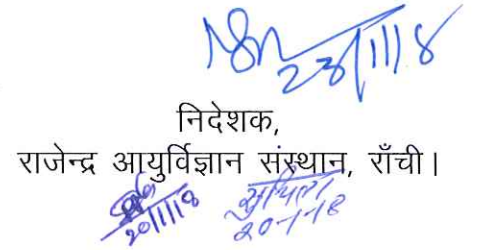 23/1/18
निदेशक,
राजेन्द्र आयुर्विज्ञान संस्थान, राँची।
20/1/18
20-1-18